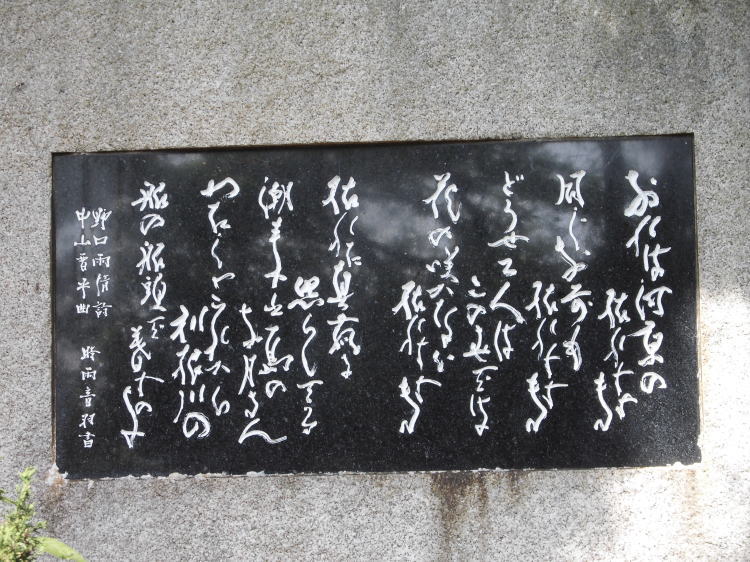 おれは河原の
枯れすすき
同じお前も
枯れすすき
どうせ二人は
この世では
花の咲かない
枯れすすき
枯れた真菰に
照らしてる
潮来出島の
お月さん
わたしやこれから
利根川の
船の船頭で
暮すのよ
野口雨情詩
中山晋平曲
時雨音羽書